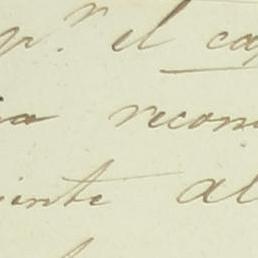 pr. el ca
ia recon
iente al